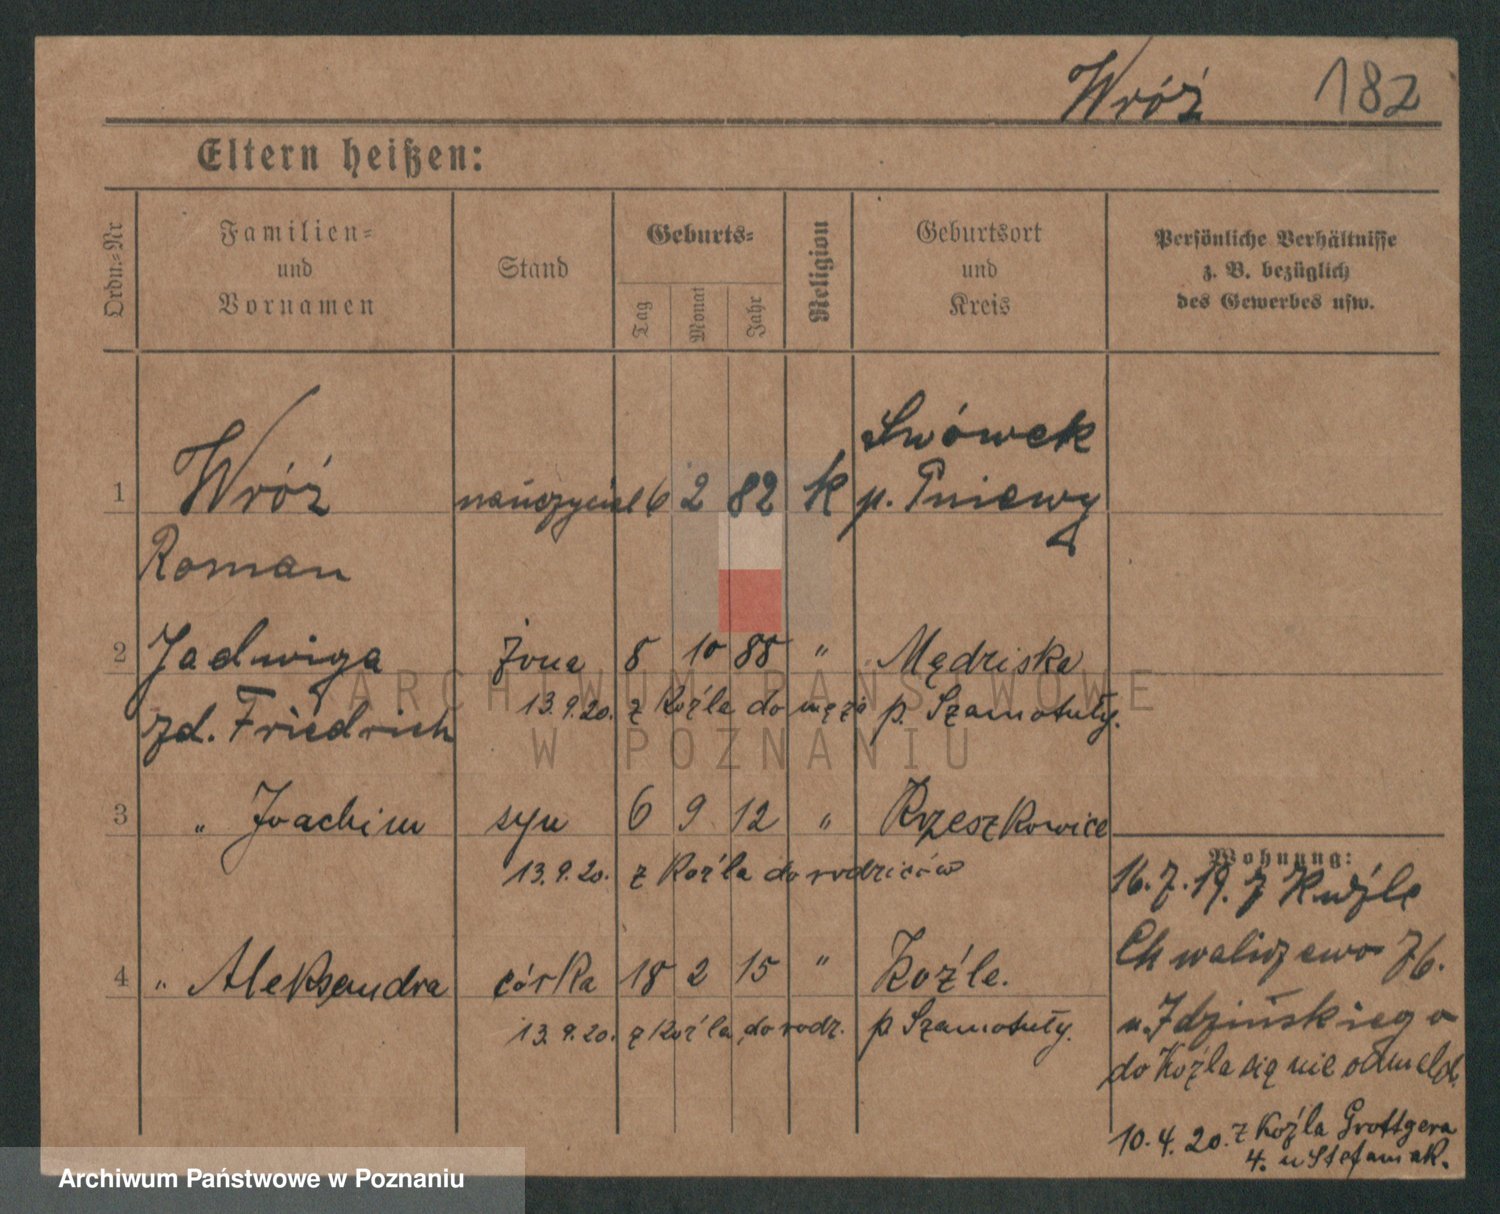 Wróż 182
Eltern heißen:
Ordn.-Nr
Familien-
und
Vornamen
Stand
Geburts-
Tag
Monat
Jahr
Religion
Geburtsort
und
Kreis
Persönliche Verhältnisse
z. B. bezüglich
des Gewerbes usw.
Lwówek
1 Wróż nauczyciel 6 2 82 k p. Pniewy
Roman
2 Jadwiga żona 8 10 88 " Mądziska
13.9.20. z Koźla do męża p. Szamotuły.
zd. Friedrich
3 " Joachim syn 6 9 12 " Rzeszkowice
13.9.20. z Koźla do rodziców
Wohnung:
16.7.19. z Koźle
Chwaliszewo 76.
4 " Aleksandra córka 18 2 15 " Koźle.
13.9.20. z Koźla do rodz. p Szamotuły.
u. Idzińskiego
do Koźla się nie odmeld.
10.4.20. z Koźla Grottgera
4. u Stefaniak.
ARCHIWUM PAŃSTWOWE
W POZNANIU
Archiwum Państwowe w Poznaniu